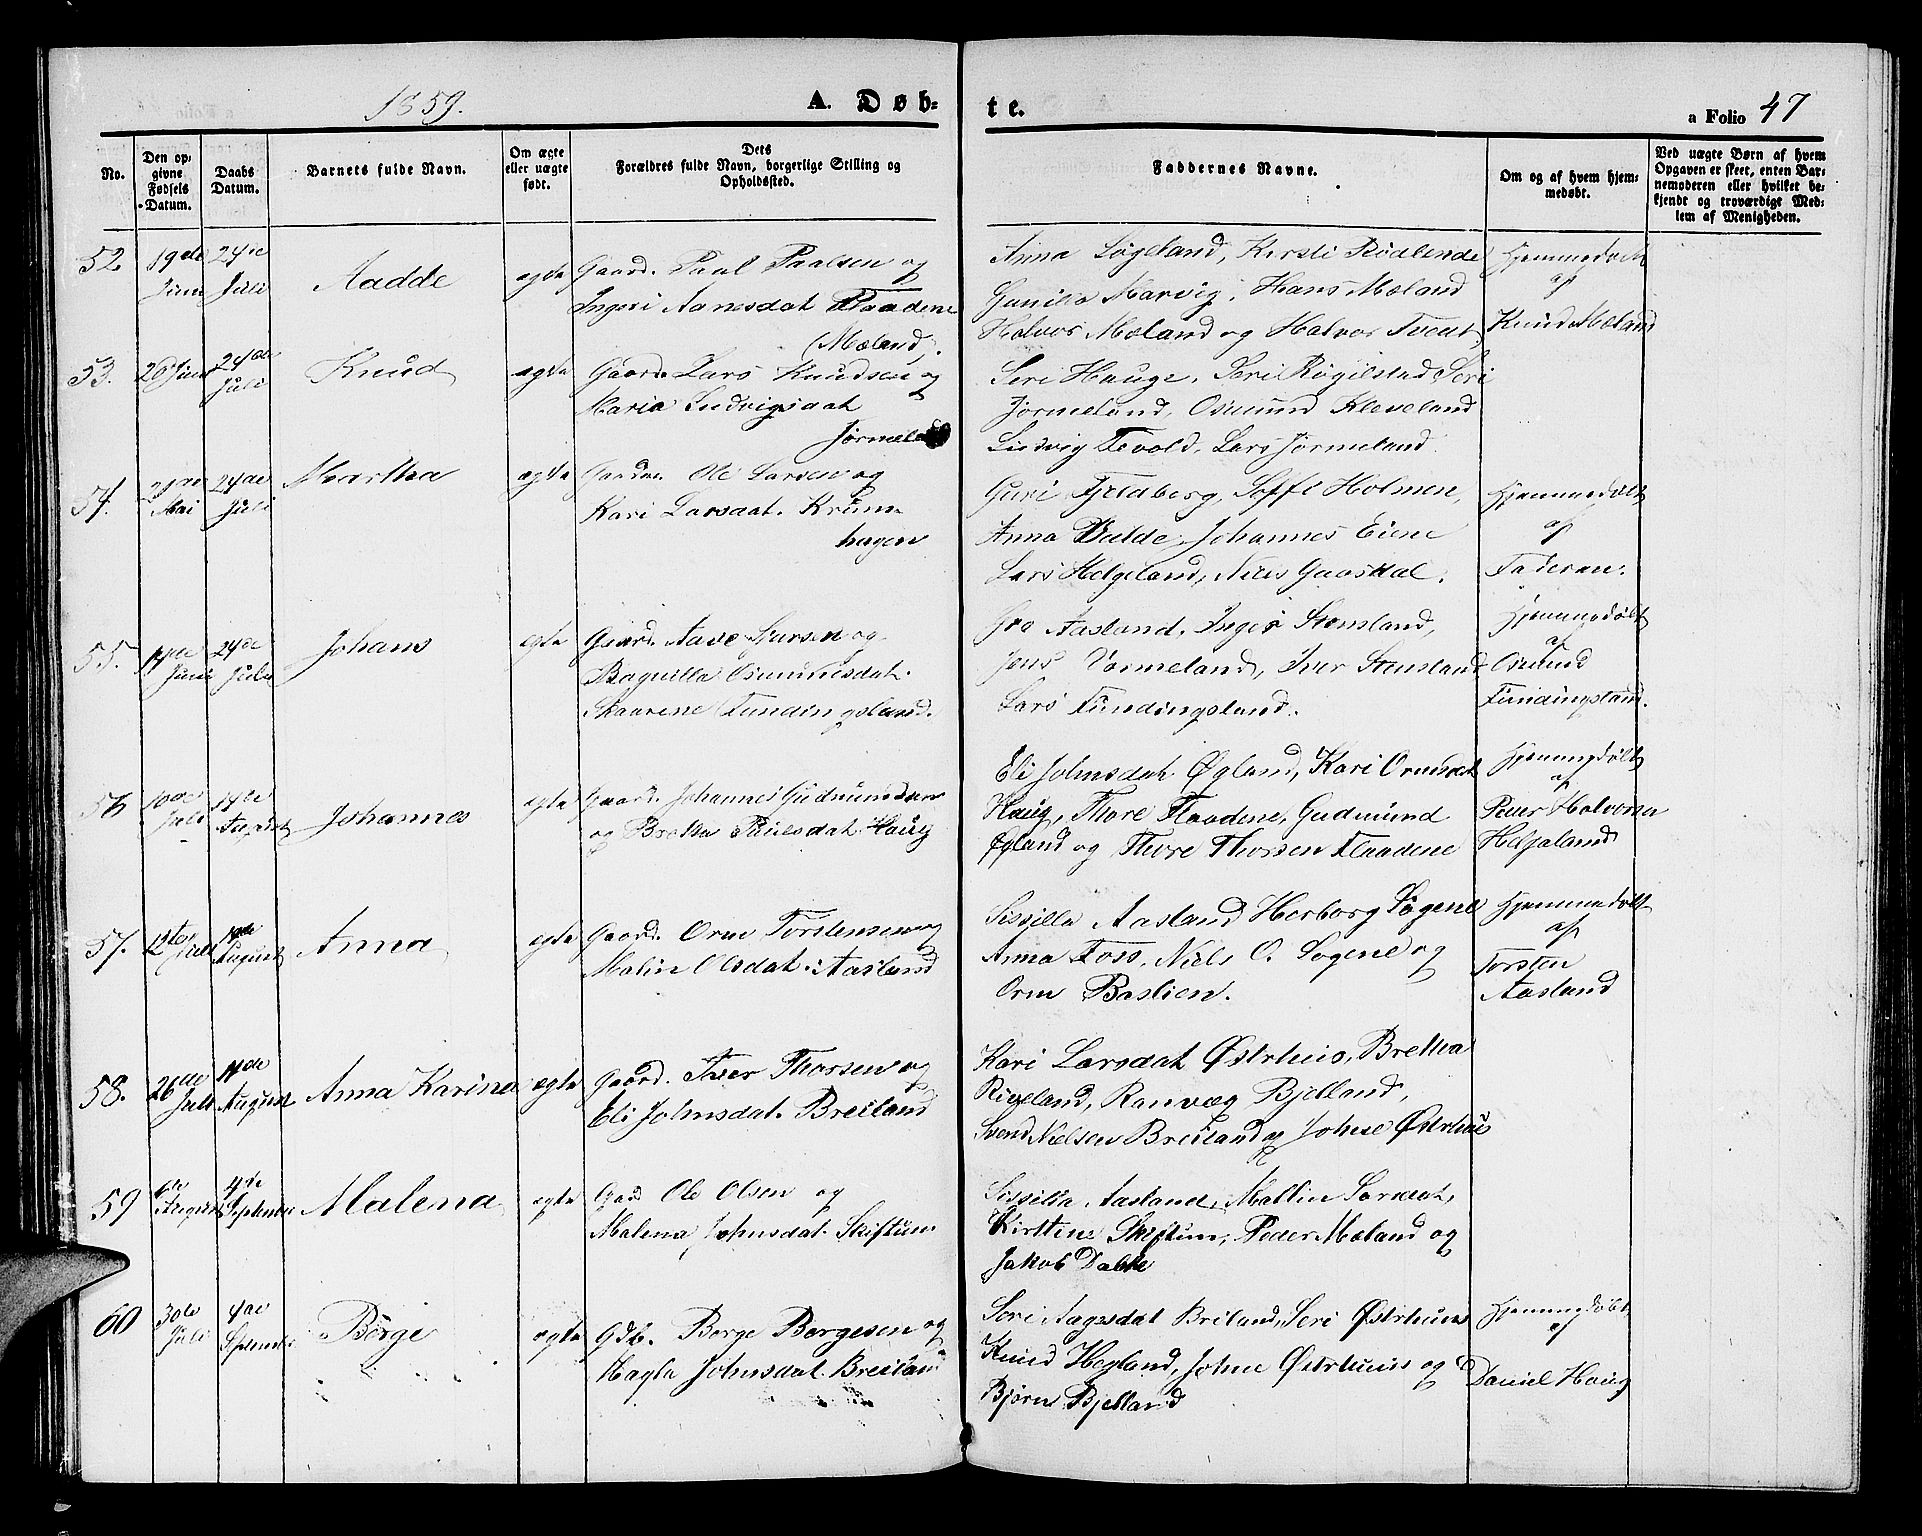 1859.
A. Døb-
te.
a Folio 47
No.
Den opgivne Fødsels Datum.
Daabs Datum.
Barnets fulde Navn.
Om ægte eller uægte født.
Dets Forældres fulde Navn, borgerlige Stilling og Opholdssted.
Faddernes Navne.
Om og af hvem hjemmedøbt.
Ved uægte Børn af hvem Opgaven er skeet, enten Barnemoderen eller hvilket bekjendt og troværdigt Medlem af Menigheden.
52. 19de Juni 24de Juli Aadde ægte
Gaard. Paul Paalsen og
Ingeri Aanesdat. Flaadene
(Mæland.
Anna Løgeland, Kirsti
Gunilla Marvig, Hans Mæland
Halvor Mæland og Halvor Tveit
Hjemmedøbt
af
Knud Mæland
53. 20 Juni 24de Juli Knud ægte
Gaard. Lars Knudsen og
Maria Ludvigsdat
Jørmeland
Seri Hauge, Seri Røgilstad Seri
Jørmeland, Osmund Kleveland
Ludvig Tevold, Lars Jørmeland.
54. Mai 24de Juli Martha ægte
Gaardm. Ole Larsen og
Kari Larsdat. Krum-
hagen
Guri Fjeldberg, Soffi Holmen,
Anna Dalde, Johannes Eiene
Lars Helgeland, Niels Gaasdal.
Hjemmedøbt
af
Faderen.
55. Juni 24de Juli Johans ægte
Gaard. Aave Sjursen og
Baguilla Osmundsdat.
Skaarene Fundingsland.
Gro Aasland, Inger Stensland,
Jens Vormeland, Iver Stensland
Lars Fundingsland.
Hjemmedøbt
af
Osmund
Fundingsland.
56 10de Juli 14de August Johannes ægte
Gaard. Johannes Gudmundsen
og Bretha Poulsdat. Haug
Eli Johnsdat Øgland, Kari Ormsdat
Haug, Thore Flaadene, Gudmund
Øgland og Thore Thorsen Flaadene
Hjemmedøbt
af
Peder Halvorsen
Helgaland
57. 12te Juli August Anna ægte
Gaard. Orm Torstensen og
Malin Olsdat. Aasland
Sissilla Aasland Herborg Søgene
Anna Foss, Niels O. Sogene og
Orm Bastien.
Hjemmedøbt
af
Torsten
Aasland
58. 26de Juli 14de August Anna Karina ægte
Gaard. Iver Thorsen og
Eli Johnsdat. Breiland
Kari Larsdat Østrhus, Bretha
Rigeland, Ranvæg Bjelland,
Svend Nielsen Breiland og Johne Østrhus
59 6te August 4de September Malena ægte
Gaard Ole Olsen og
Malena Johnsdat. Skiftun
Sissilia Aasland, Mallin
Kirstine Skiftun, Peder Mæland og
Jakob Dalde
60 30te Juli 4de September Børge ægte
Gdb. Børge Børgesen og
Hagla Johnsdat. Breiland
Seri Aagesdat Breiland, Seri Østrhus
Knud Hegland, Johne Østrhuus og
Bjørn Bjelland
Hjemmedøbt,
af
Daniel Haug